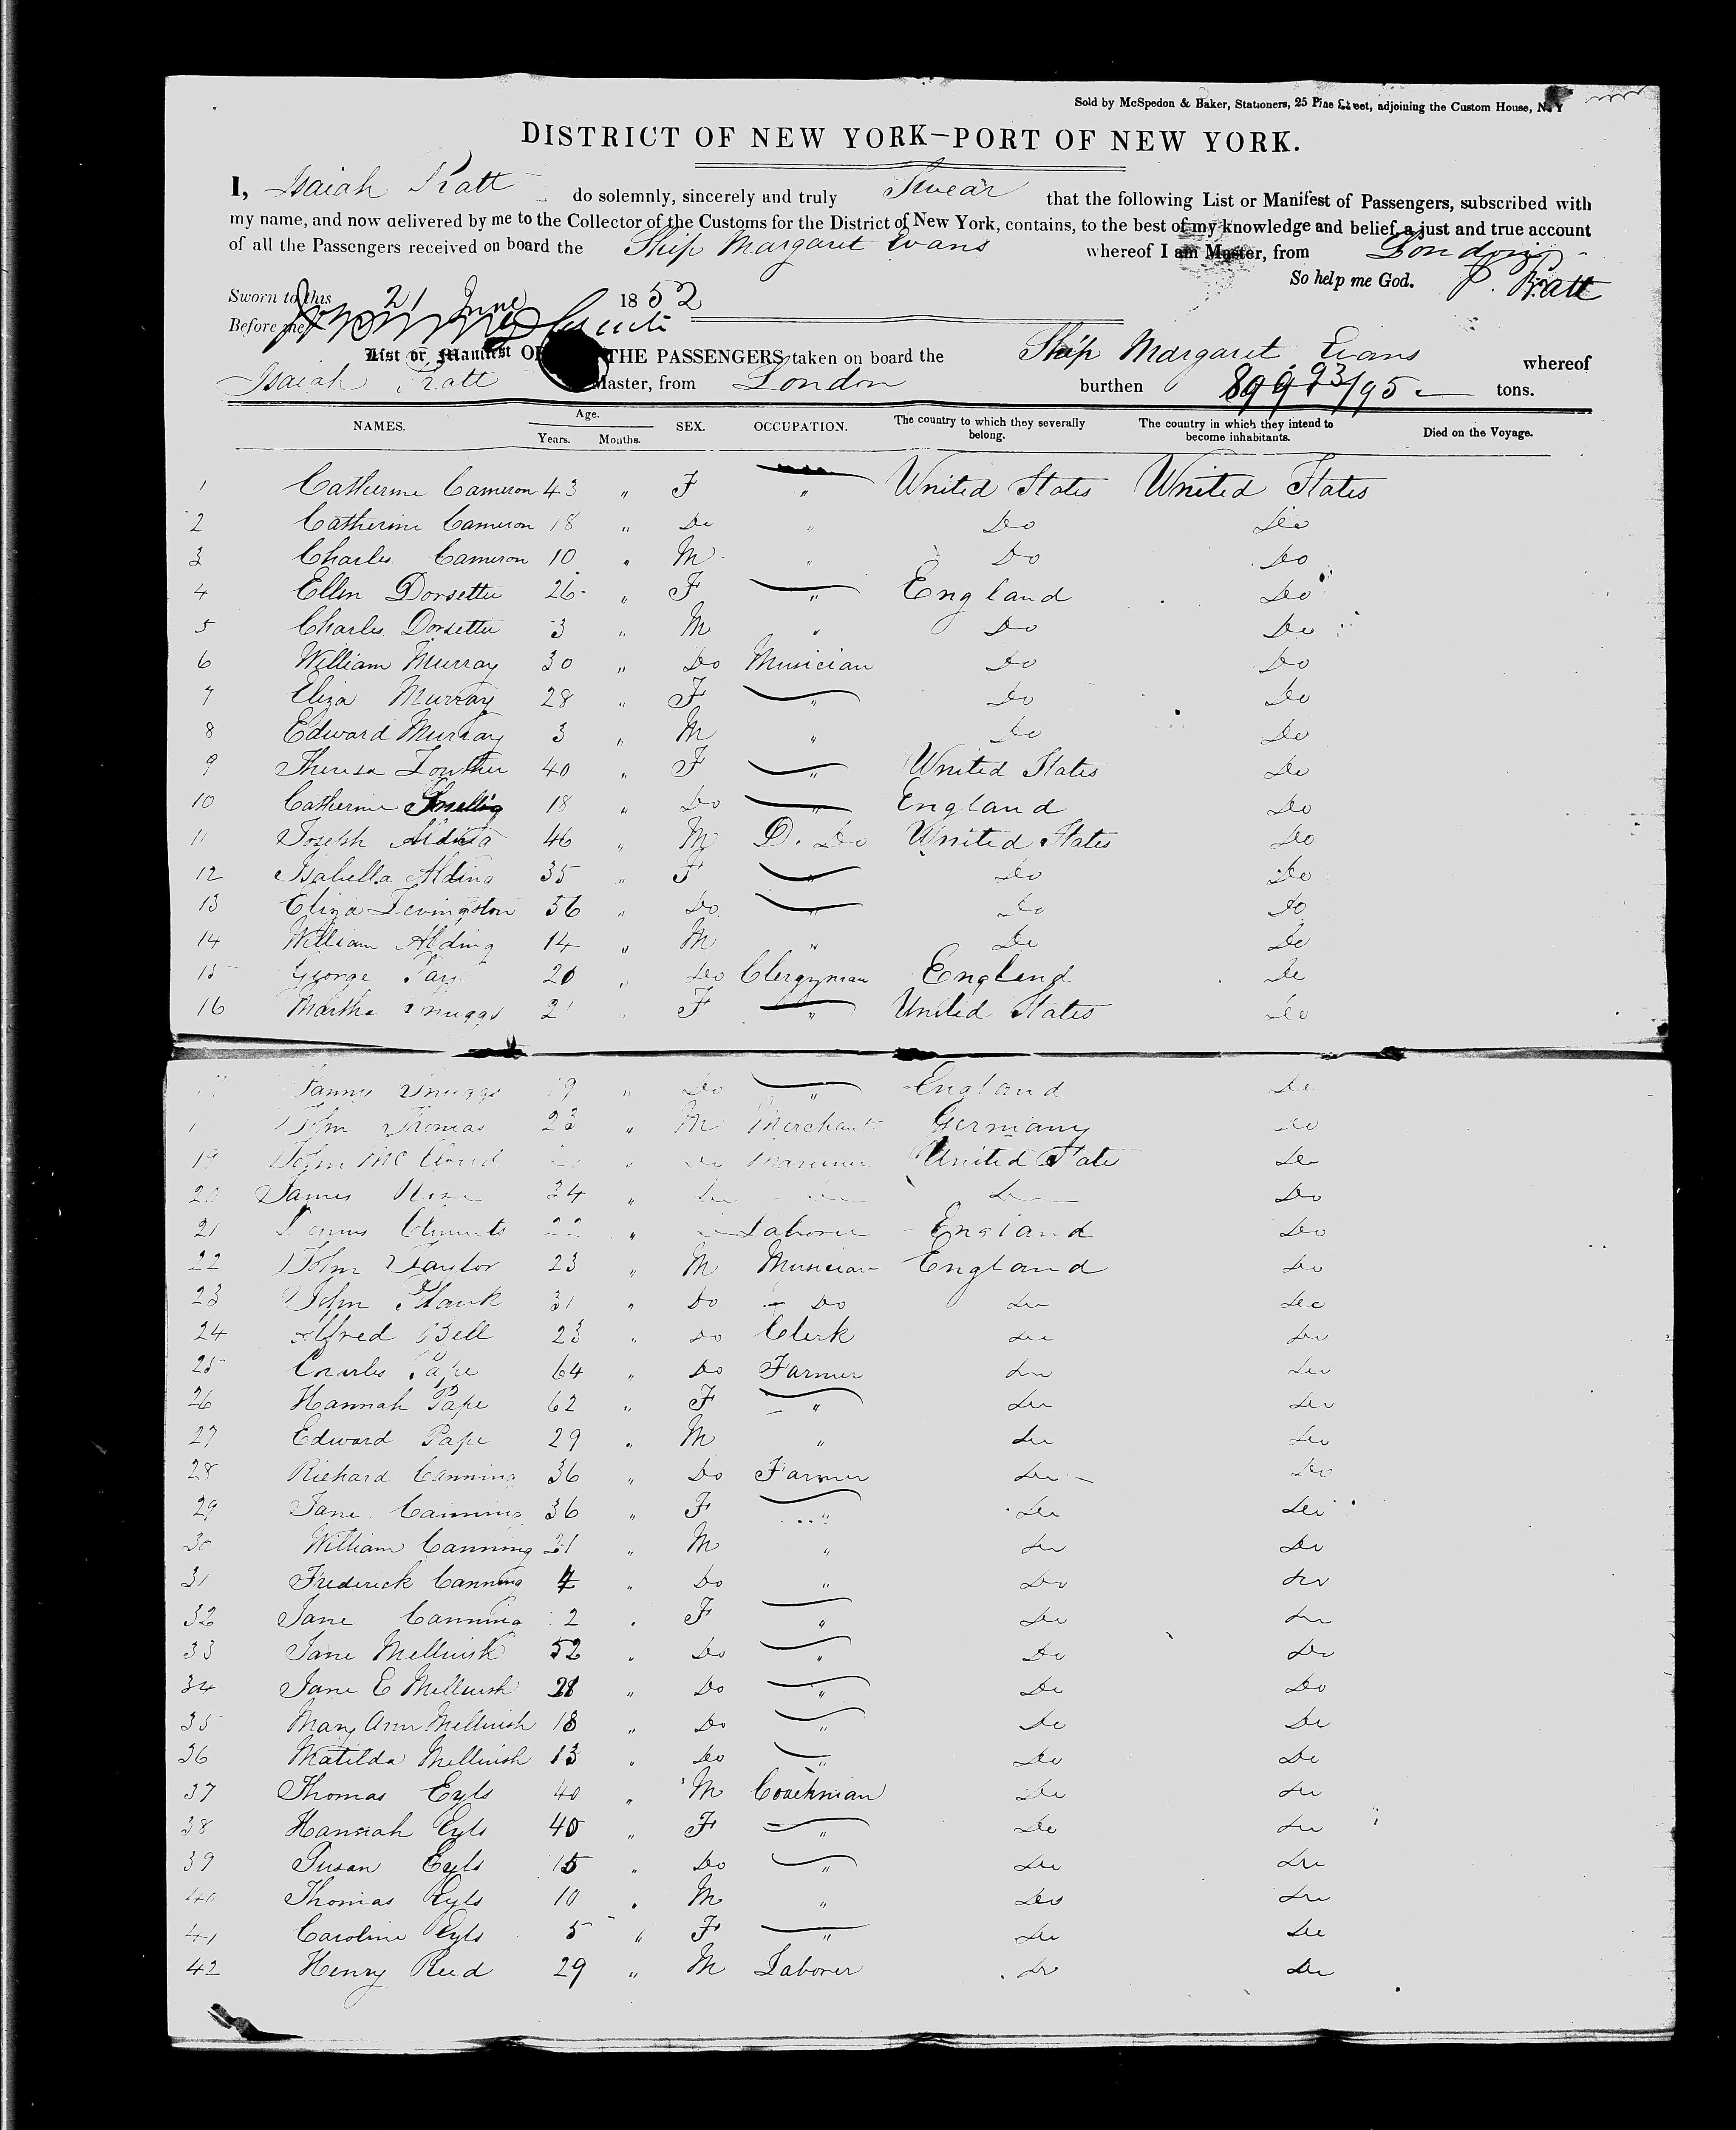 Sold by McSpedon & Baker, Stationers, 25 Pine Street, adjoining the Custom House, N.Y
DISTRICT OF NEW YORK–PORT OF NEW YORK.
I, Isaiah Pratt do solemnly, sincerely and truly Swear that the following List or Manifest of Passengers, subscribed with
my name, and now delivered by me to the Collector of the Customs for the District of New York, contains, to the best of my knowledge and belief, a just and true account
of all the Passengers received on board the Ship Margaret Evans whereof I am Master, from London
So help me God. I. Pratt
Sworn to this 21 June 1852
Before me
List or Manifest OF THE PASSENGERS taken on board the Ship Margaret Evans whereof
Isaiah Pratt Master, from London burthen 899 93/95 tons.
NAMES. Age. Years. Months. SEX. OCCUPATION. The country to which they severally belong. The country in which they intend to become inhabitants. Died on the Voyage.
1 Catherine Cameron 43 " F " United States United States
2 Catherine Cameron 18 " Do " Do Do
3 Charles Cameron 10 " M " Do Do
4 Ellen Dorsetter 26 " F " England Do
5 Charles Dorsetter 3 " M " Do Do
6 William Murray 30 " Do Musician Do Do
7 Eliza Murray 28 " F " Do Do
8 Edward Murray 3 " M " Do Do
9 Theresa Louther 40 " F " United States Do
10 Catherine 18 " Do " England Do
11 Joseph 46 " M D. Do United States Do
12 Isabella Alding 35 " F " Do Do
13 Eliza Levingston 36 " Do " Do Do
14 William Alding 14 " M " Do Do
15 George 20 " Do Clergyman England Do
16 Martha Snuggs F " United States Do
17 Fanny Snuggs 19 " Do " England Do
John Thomas 23 " M Merchant Germany Do
19 John Mc " Do Mariner United States Do
20 James 34 " Do Do Do
21 Clements 22 " Laborer England Do
22 John Taylor 23 " M Musician England Do
23 John 31 " Do Do Do Do
24 Alfred Bell 23 " Do Clerk Do Do
25 Charles Pape 64 " Do Farmer Do Do
26 Hannah Pape 62 " F " Do Do
27 Edward Pape 29 " M " Do Do
28 Richard Canning 36 " Do Farmer Do Do
29 Jane Canning 36 " F " Do Do
30 William Canning 21 " M " Do Do
31 Frederick Canning " Do " Do Do
32 Jane Canning 2 " F " Do Do
33 Jane Melluish 52 " Do " Do Do
34 Jane E Melluish 21 " Do " Do Do
35 Mary Ann Melluish 18 " Do " Do Do
36 Matilda Melluish 13 " Do " Do Do
37 Thomas Eyls 40 " M Coachman Do Do
38 Hannah Eyls 40 " F " Do Do
39 Susan Eyls 15 " Do " Do Do
40 Thomas Eyls 10 " M " Do Do
41 Caroline Eyls 5 " F " Do Do
42 Henry Reed 29 " M Laborer Do Do